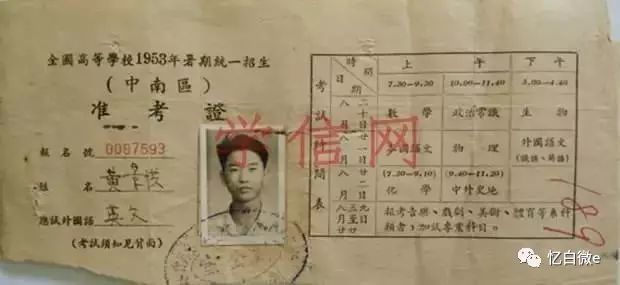 全國高等學校1953年暑期統一招生
(中南區)
准考證
報名號 0087593
姓名 黃
應試外國語 英文
(考試須知見背面)
考試時間表
時期
日期
上午
下午
7.30—9.30
10.00—11.40
3.00—4.40
八月二十日
數學
政治常識
生物
八月廿一日
本國語文
物理
外國語文
(俄語、英語)
八月廿二日
(7.30—9.10)
化學
(9.40—11.20)
中外史地
報考音樂、戲劇、美術、體育等系科
類者,加試專業科目。
189
学信网
忆白微e